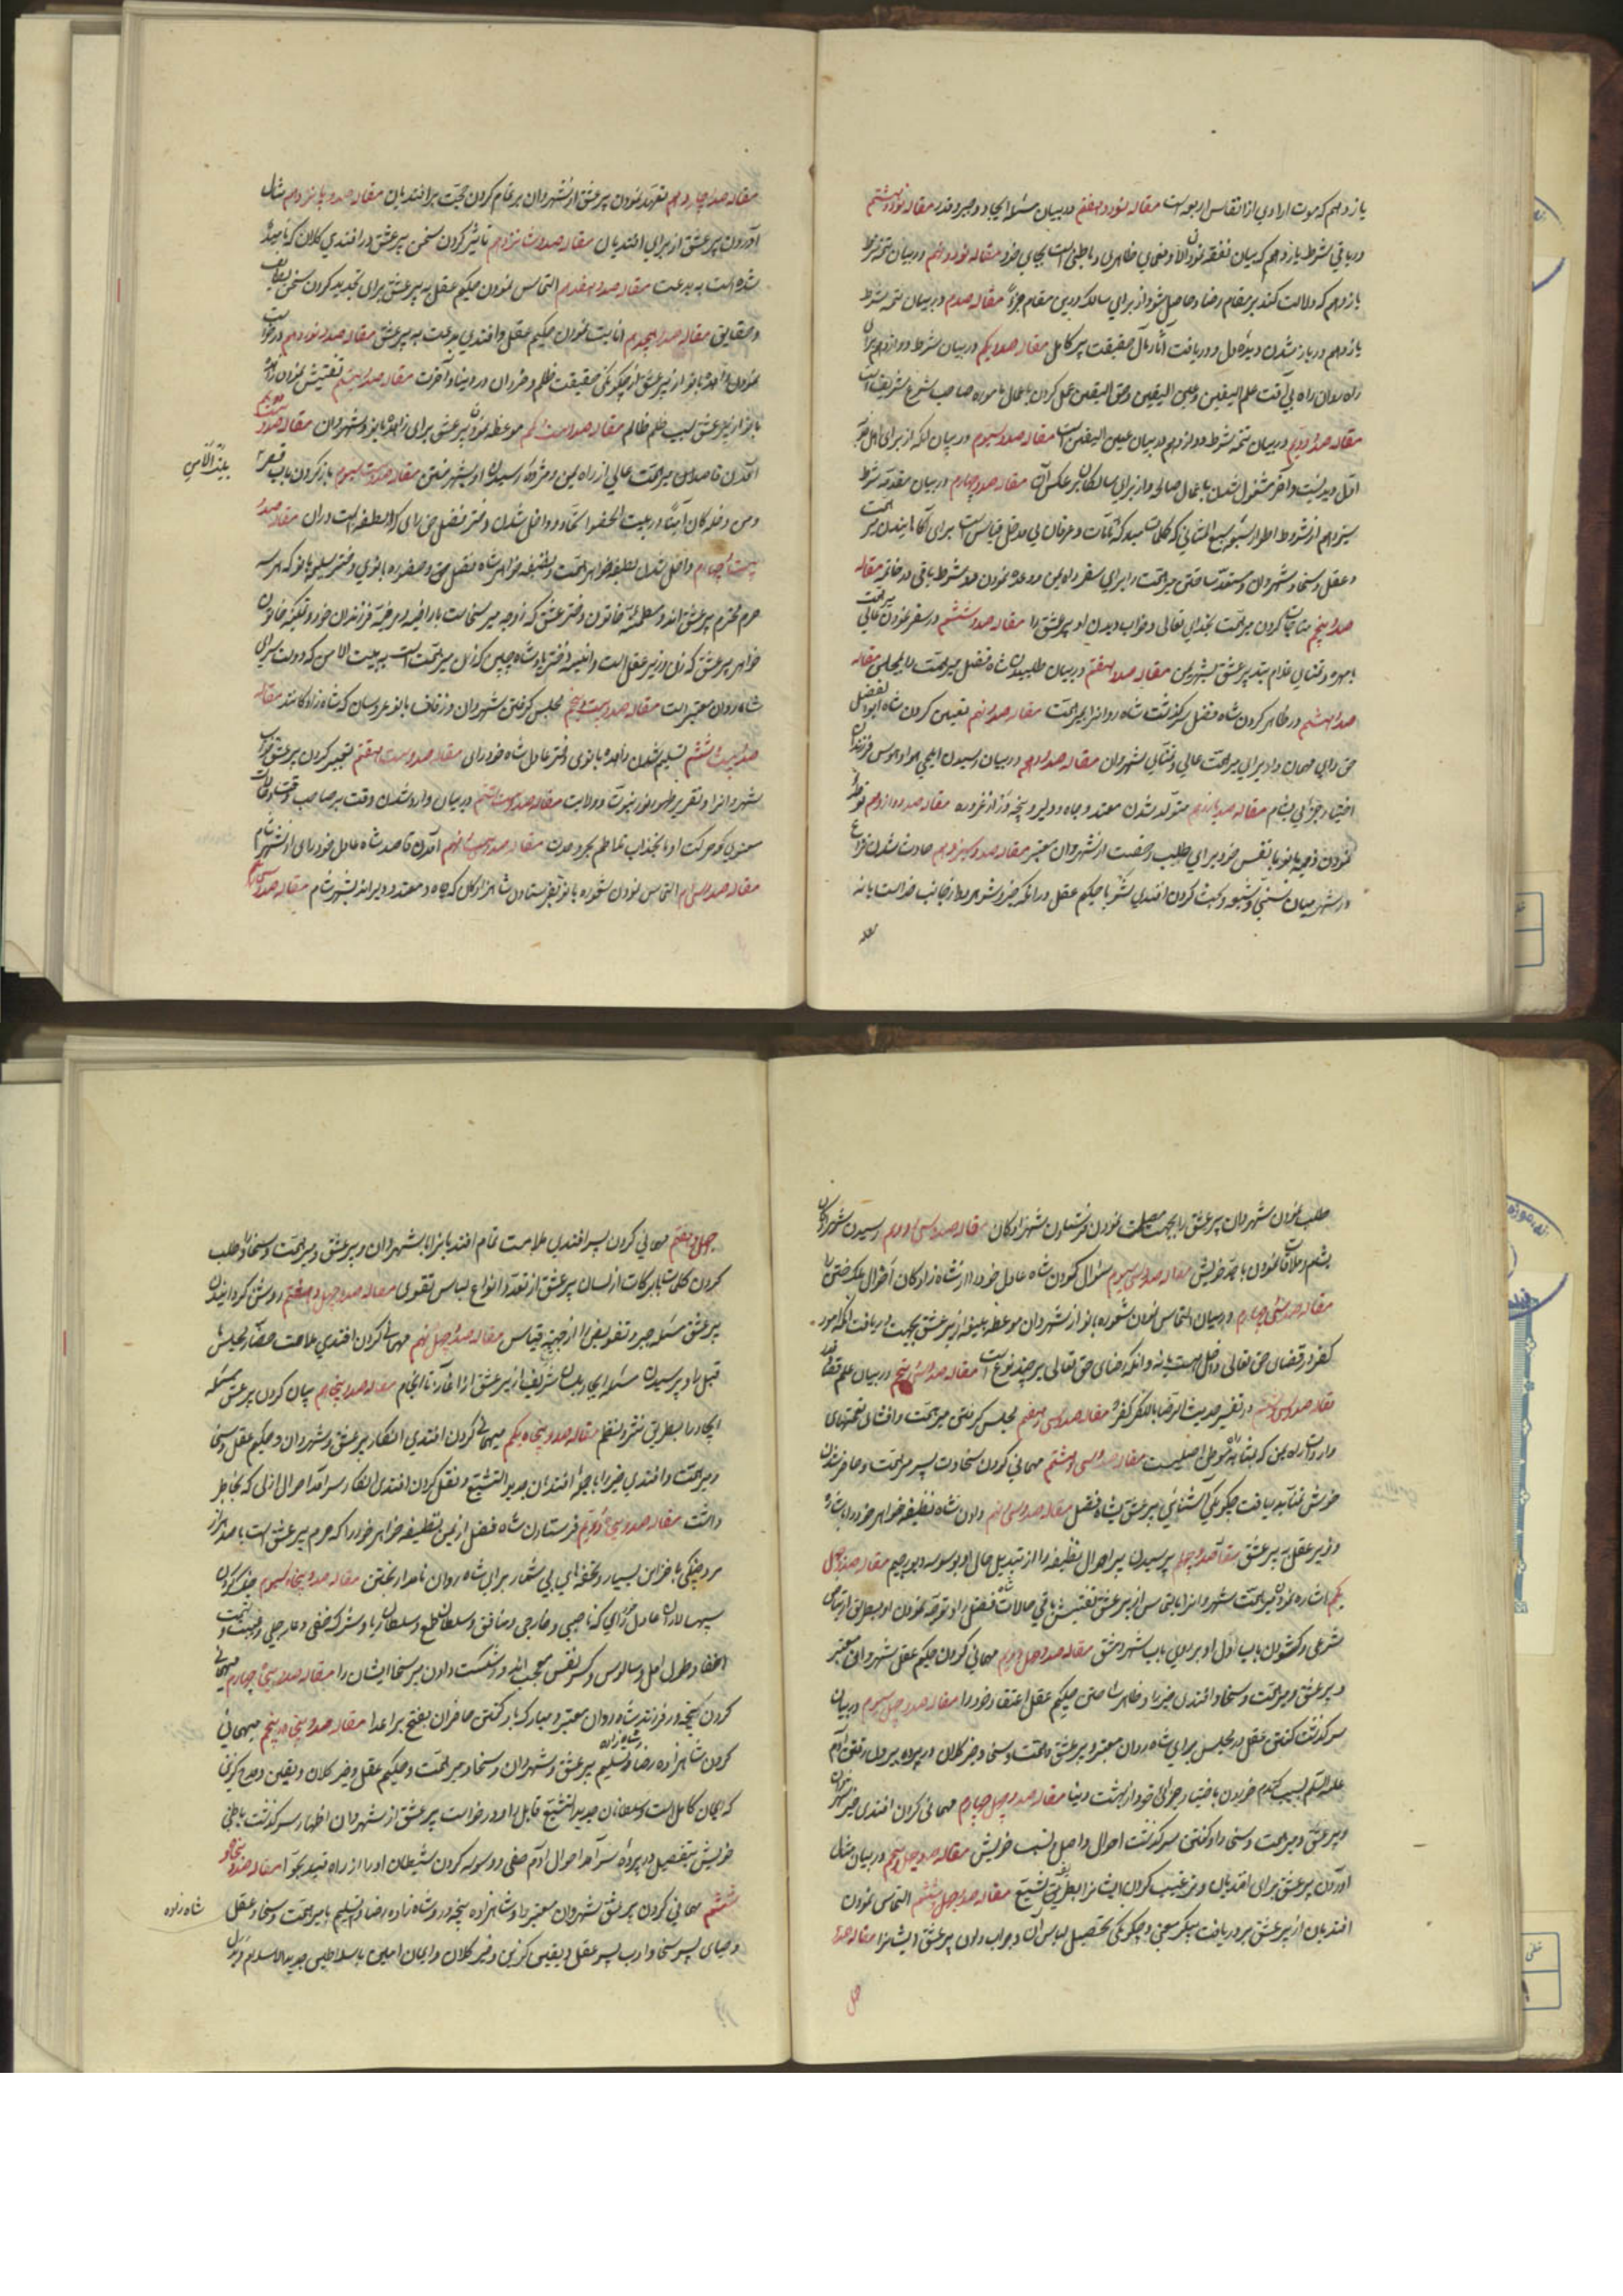 یازدهم که موت ارادی از انفاس اربعه است مقاله نود و هفتم در بیان مسئله ایجاد و جبر و قدر مقاله نود و هشتم
در باقی شرط یازدهم که بیان نفقه نور الاوضحای ظاهری و باطنی است بجای خود مقاله نود و نهم در بیان تتمه شرط
یازدهم که دلالت کند بر مقام رضا و حاصل شود از برای سالک درین مقام جزو مقاله صدم در بیان تتمه شرط
یازدهم در باز شدن دیده دل و دریافت آثار حال حقیقت پیر کامل مقاله صد و یکم در بیان شرط دوازدهم برای
راه روان راه بی آفت علم الیقین و عین الیقین و حق الیقین عمل کردن باعمال ماموره صاحب شرع شریف است
مقاله صد و دویم در بیان تتمه شرط دوازدهم در بیان عین الیقین است مقاله صد و سیوم در بیان آنکه از برای اهل خبر
اول دیدنیست و آخر مشغول شدن باعمال صالح و از برای سالکان بر عکس آن مقاله صد و چهارم در بیان مقدمه شرط
سیزدهم از شروط اطوار سبع المثانی که کلمات برای آگاهانیدن میر همت
و عقل و سخا و شهروان و مستعد ساختن میر همت را برای سفر راه یمن و وعده نمودن دو شرط باقی در خاتمه مقاله
صد و پنجم مناجات کردن میر همت بخدای تعالی و خواب دیدن او پیر عشق را مقاله صد و ششم در سفر نمودن میر همت عالی
بامهره و تمنای غلام سید پیر عشق بشهر یمن مقاله صد و هفتم در بیان طلبیدن شاه فضل میر همت را بمجلس مقاله
صد و هشتم در ظاهر کردن شاه فضل سرگذشت شاه روانرا بمیر همت مقاله صد و نهم تعیین کردن شاه ابوالفضل
حق رای مهمان دار برای میر همت عالی و تمنای شهروان مقاله صد و دهم در بیان رسیدن ایلچی هوا و هوس فرزندان
اختیار جزئی بشام مقاله صد و یازدهم متولد شدن معتمد و جاه و دلیر و پنجه ور از غروره مقاله صد و دوازدهم توطئه
نمودن وجیه بانو با نفس خود برای طلب رخصت از شهروان معتبر مقاله صد و سیزدهم حادث شدن نزاع
در شهر میان سنی و شیعه و بحث کردن افندی شر با حکیم عقل در آنکه خیر و شر هر دو از جانب خداست یا نه
مقاله صد و چهاردهم تعهد نمودن پیر عشق از شهروان بر تمام کردن حجت بر افندیان مقاله صد و پانزدهم مثال
آوردن پیر عشق از برای افندیان مقاله صد و شانزدهم تاثیر کردن سخن پیر عشق در افندی کلان که نامیده
شده است به بدعت مقاله صد و هفدهم التماس نمودن حکیم عقل به پیر عشق برای تجدید کردن سخن معارف
و حقایق مقاله صد و هجدهم انابت نمودن حکیم عقل و افندی بدعت به پیر عشق مقاله صد و نوزدهم درخواست
نمودن زاهده بانو از پیر عشق از چگونگی حقیقت ظلم و خذلان در دنیا و آخرت مقاله صد و بیستم تفتیش نمودن زاهده
بانو از پیر عشق سبب ظلم ظالم مقاله صد و بیست و یکم موعظه نمودن پیر عشق برای زاهده بانو و شهروان مقاله صد و بیست و دویم
آمدن قاصدان میر همت عالی از راه یمن و مژده رسیدن او بشهر گفتن مقاله صد و بیست و سیوم باز کردن باب قصر
و من دخله کان آمنا در بیت الحضور اتحاد و داخل شدن دختر فضل حق رای که لطیفه است در آن مقاله صد و
بیست و چهارم داخل شدن لطیفه خواهر همت و نظیفه خواهر شاه فضل حق و صفوره بانوی دختر سلیم بانو که هر سه
حرم محترم پیر عشق اند و مطمئنه خاتون دختر عشق که زوجه میر سخاست با راضیه و مرضیه فرزندان خود و تملیکه خاتون
خواهر پیر عشق که زن وزیر عقل است و انیسه دختر پادشاه چین که زن میر همت است به بیت الامن که دولت سرای
شاه روان معتبر است مقاله صد و بیست و پنجم مجلس گرفتن شهروان در زفاف بانو عروسان که شاه زادگانند مقاله
صد و بیست و ششم تسلیم شدن زاهده بانوی دختر عادل شاه خود رای مقاله صد و بیست و هفتم تعبیر کردن پیر عشق خواب
شهروانرا و تقریر ظهور نور نبوت و ولایت مقاله صد و بیست و هشتم در بیان وارد شدن وقت بر صاحب وقت و واردات
معنوی که حرکت او بانجذاب تلاطم بحر وحدت مقاله صد و بیست و نهم آمدن قاصد شاه عادل خود رای از شهر شام
مقاله صد و سی ام التماس نمودن شعوره بانو بفرستادن شاهزادگان که جاه و معتمد و دلیر اند بشهر شام مقاله صد و سی و یکم
بیت الامن
طلب نمودن شهروان پیر عشق را بجهت مصلحت نمودن فرستادن شهزادگان مقاله صد و سی و دویم رسیدن شهزادگان
بشام و ملاقات نمودن با جد خویش مقاله صد و سی و سیوم سئوال نمودن شاه عادل خود رای از شاه زادگان احوال ملک ختن را
مقاله صد و سی و چهارم در بیان التماس نمودن شعوره بانو از شهروان موعظه بلیغه از پیر عشق بجهت دریافت آنکه امور
کفر در قضای حق تعالی داخل هست یا نه و آنکه رضای حق تعالی بر چند نوع است مقاله صد و سی و پنجم در بیان علم قضا
مقاله صد و سی و ششم در تفسیر حدیث الرضا بالکفر کفر مقاله صد و سی و هفتم مجلس گرفتن میر همت و افشای تحفهای
واردات راه یمن که بشاه متوطن اصلیست مقاله صد و سی و هشتم مهمانی کردن سخاوت پسر میر همت و حاضر شدن
خویش فضا بدریافت چگونگی آشنایی پیر عشق بشاه فضل مقاله صد و سی و نهم دادن شاه نظیفه خواهر خود را بشارت
وزیر عقل به پیر عشق مقاله صد و چهلم پرسیدن پیر احوال نظیفه را از تبدیل حال او بوسوسه دیو رجیم مقاله صد و چهل
یکم اشاره نمودن میر همت شهروانرا بالتماس از پیر عشق تفتیش باقی حالات شاه فضل را و توجه نمودن او بطریق ارتیاض
شرعی و گشودن باب اول او بر روی باب شهر دمشق مقاله صد و چهل و دویم مهمانی کردن حکیم عقل شهروان معتبر
و پیر عشق و میر همت و سخا و افندی خیر را و ظاهر ساختن حکیم عقل اعتقاد خود را مقاله صد و چهل و سیوم در بیان
سرگذشت گفتن عقل در مجلس برای شاه روان معتبر و پیر عشق و همت و سخا و خیر کلان در پرده بیرون رفتن آدم
علیه السلام بسبب گندم خوردن باختیار جزئی خود از بهشت دنیا مقاله صد و چهل و چهارم مهمانی کردن افندی خیر شهروان
و پیر عشق و میر همت و سخا را و گفتن سرگذشت احوال و اصل و نسب خویش مقاله صد و چهل و پنجم در بیان مثال
آوردن پیر عشق برای افندیان و ترغیب کردن ایشانرا بطریق تشیع مقاله صد و چهل و ششم التماس نمودن
افندیان از پیر عشق بر دریافت پیکر معنی و چگونگی تحصیل لباس آن و جواب دادن پیر عشق ایشانرا مقاله صد و
چهل و هفتم مهمانی کردن پسر افندی علامت تمام افندیانرا با شهروان و پیر عشق و میر همت و سخا و طلب
کردن کلمات با برکات از لسان پیر عشق از تعدد انواع لباس تقوی مقاله صد و چهل و هشتم روشن گردانیدن
پیر عشق مسئله جبر و تفویض را از جهت قیاس مقاله صد و چهل و نهم مهمانی کردن افندی علامت حضار مجلس
قبل را و پرسیدن مسئله ایجاد بلسان شریف از پیر عشق از آغاز تا انجام مقاله صد و پنجاهم بیان کردن پیر عشق مسئله
ایجاد را بطریق نثر و نظم مقاله صد و پنجاه و یکم میهمانی کردن افندی انکار پیر عشق و شهروان و حکیم عقل و سخا
و میر همت و افندی خیر را با جمیع افندیان جدید التشیع و نقل کردن افندی انکار سرآمد احوال ازلی که بخاطر
داشت مقاله صد و پنجاه و دویم فرستادن شاه فضل از یمن نظیفه خواهر خود را که حرم پیر عشق است با صد هزار
مرد جنگی با خزاین بسیار و تحفه های بی شمار برای شاه روان نامدار بختن مقاله صد و پنجاه و سیوم جنگ کردن
سپهسالاران عادل خود رای که ناصبی و خارجی و منافق و سلطان طمع و سلطان ریا و شرک خفی و عارجلی و
اخفا و طول امل و سالوس و کسر نفس عجب اند و شکست دادن میر سخا ایشان را مقاله صد و پنجاه و چهارم میهمانی
کردن پنجه ور فرزند شاه روان معتبر و مبارک باد گفتن حاضران بفتح بر اعدا مقاله صد و پنجاه و پنجم میهمانی
کردن شاهزاده رضا و شاه زاده تسلیم پیر عشق و شهروان و سخا و میر همت و حکیم عقل و خیر کلان و یقین و ورع گزین
که ایمان کامل است و سلطانان جدید التشیع قابل را و درخواست پیر عشق از شهروان اظهار سرگذشت باطنی
خویش بتفصیل در پرده سرآمد احوال آدم صفی و وسوسه کردن شیطان او را از راه قید بحوا مقاله صد و پنجاه و
ششم مهمانی کردن پیر عشق شهروان معتبر را و شاهزاده پنجه ور و شاه زاده رضا و تسلیم با میر همت و سخا و عقل
و حیای پسر سخا و ادب پسر عقل و یقین گزین و خیر کلان و ایمان امین با سلاطین جدید الاسلام و نزول
شاه زاده